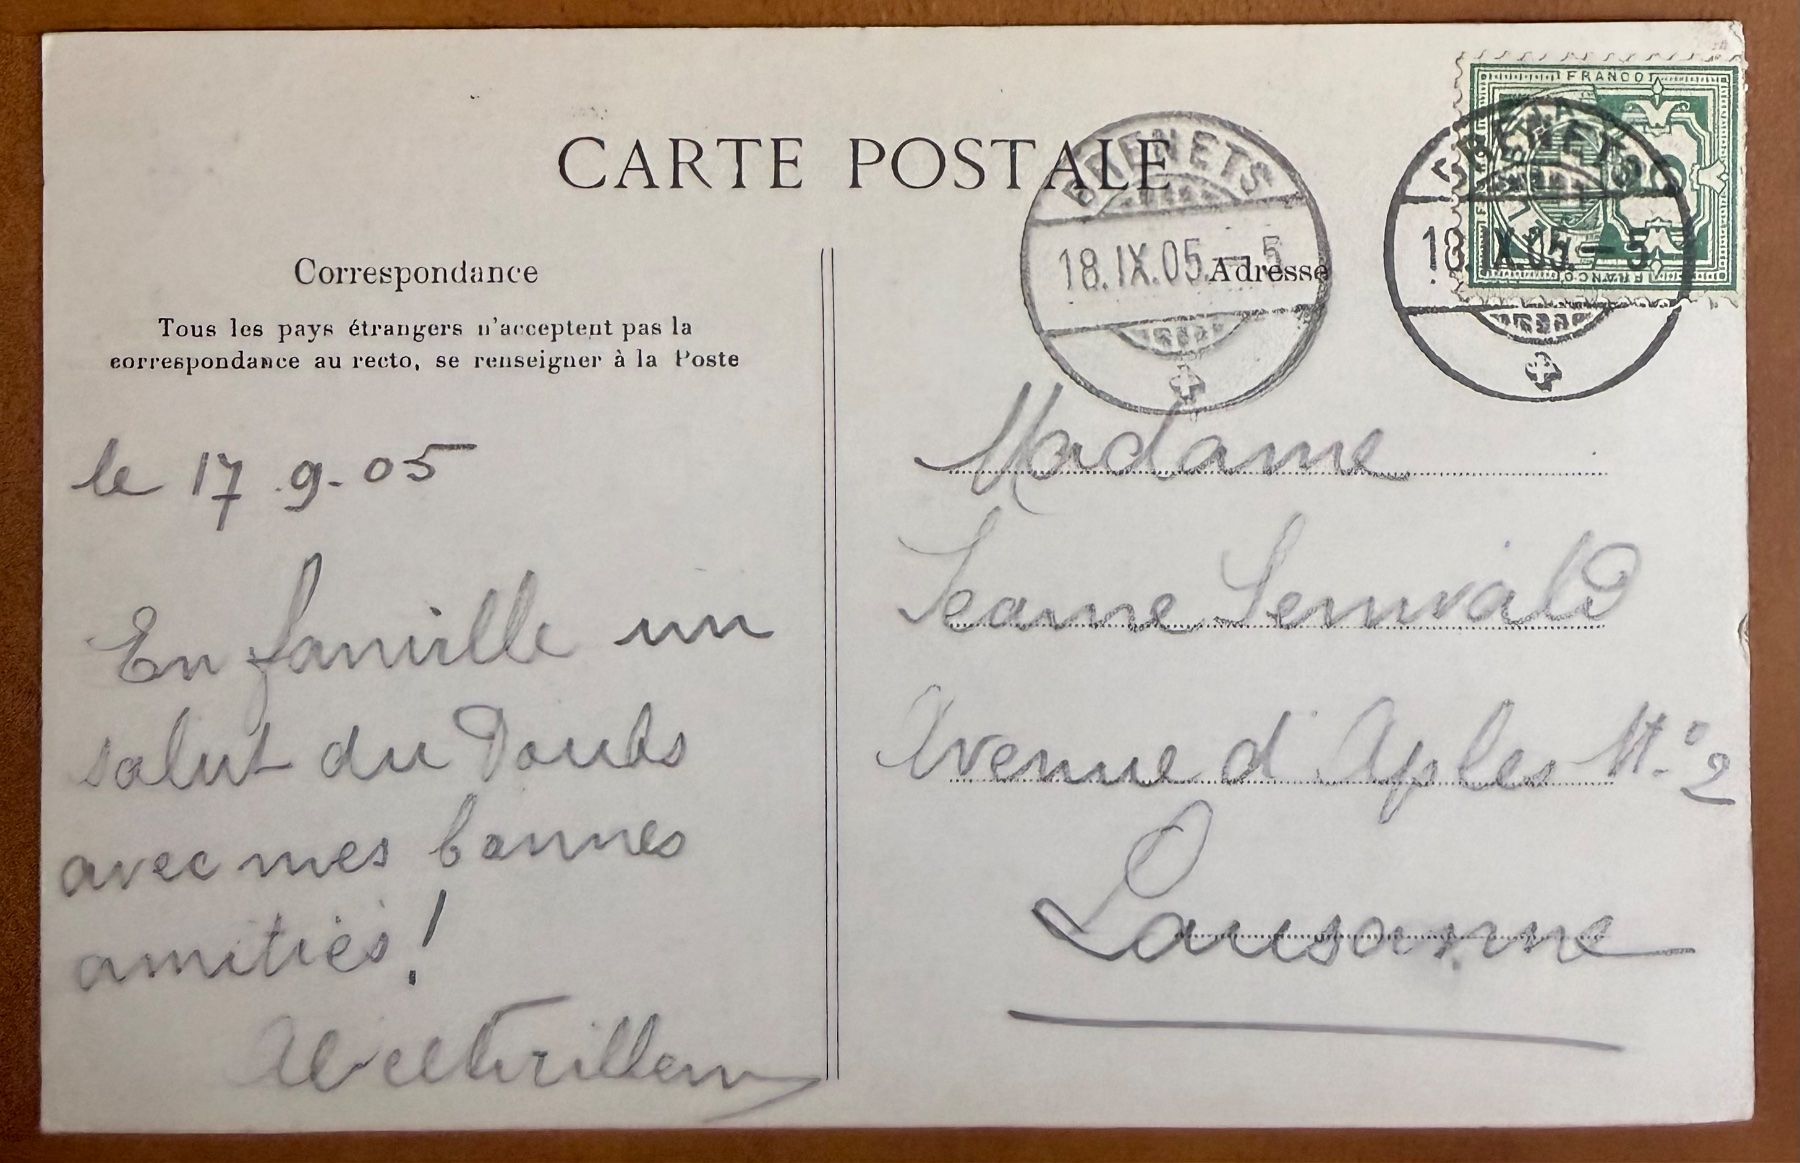 CARTE POSTALE
Correspondance
Tous les pays étrangers n'acceptent pas la
correspondance au recto, se renseigner à la Poste
le 17.9.05
En famille un
salut du Doubs
avec mes bonnes
amitiés!
FRANCO
FRANCO
BRENETS
18.IX.05.–5
BRENETS
18.IX.05.–5
Adresse
Madame
Jeanne
Avenue d'Aples No 2
Lausanne